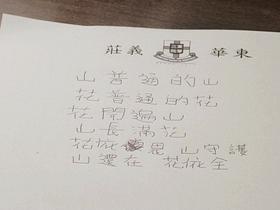 東華義莊
山普通的山
花普通的花
花開遍山
山長滿花
花依恩山守護
山還在花依全